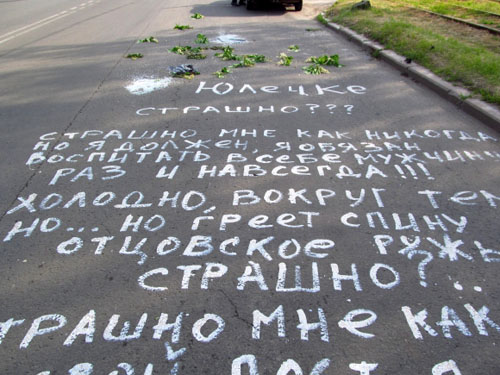 Юлечке
СТРАШНО???
СТРАШНО МНЕ КАК НИКОГДА
НО Я ДОЛЖЕН, Я ОБЯЗАН
ВОСПИТАТЬ В СЕБЕ МУЖЧИН
РАЗ И НАВСЕГДА!!!
ХОЛОДНО, ВОКРУГ ТЕМ
НО... НО ГРЕЕТ СПИНУ
ОТЦОВСКОЕ РУЖЬ
СТРАШНО?..
СТРАШНО МНЕ КАК